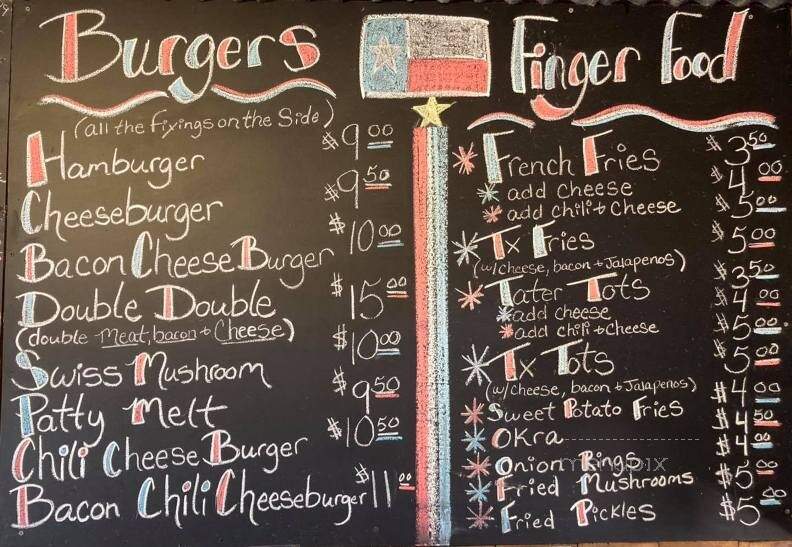 Burgers
(all the Fixings on the Side)
Hamburger $9.00
Cheeseburger $9.50
Bacon Cheese Burger $10.00
Double Double $15.00
(double Meat, bacon + Cheese)
Swiss Mushroom $10.00
Patty Melt $9.50
Chili Cheese Burger $10.50
Bacon Chili Cheeseburger $11.00
Finger Food
* French Fries $3.50
* add cheese $4.00
* add chili + Cheese $5.00
* Tx Fries $5.00
(w/cheese, bacon + Jalapenos)
* Tater Tots $3.50
* add cheese $4.00
* add chili + cheese $5.00
* Tx Tots $5.00
(w/cheese, bacon + Jalapenos)
* Sweet Potato Fries $4.00
* Okra $4.50
* Onion Rings $4.00
* Fried Mushrooms $5.00
* Fried Pickles $5.00
menupix